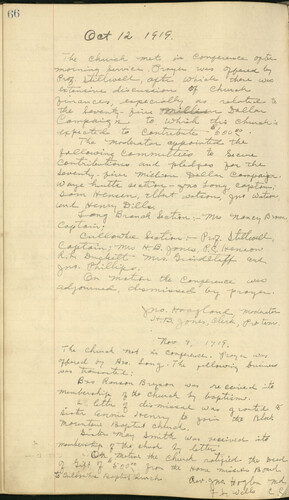 66
Oct 12 1919.
The Church met in Congerence after
morning service. Prayer was offered by
Prof. Stillwell, after which there was
extensive discussions of Church
finances, especially as related to
the Seventy-five Million Dollar
Campaign to which this Church is
expected to contribute $6000.00
The moderator appointed the
following Committees to secure
Contributions and pledges for the
Seventy-five Million Dollar Campaign:
section - Long Captain;
Sam Henson, Elbert Watson, Jno. Watson
and Henry Dills.
Long Branch Section: - Mrs Nancy Brown
Captain;
Cullowhee Section: - Prof. Stillwell,
Captain; Mrs H.B. Jones, R.C. Henson
Mrs Grindstaff and
Jno. Phillips.
On motion the Conference was
adjourned, dismissed by prayer.
Jno. Hoglond, moderator
H.B. Jones, Clerk,
Nov. 9, 1919.
The church met in conference. Prayer was
offered by Bro. Long. The following business
was transacted:
Bro Ranson Bryson was received into
membership of the church by baptism.
A letter of dismissal was granted to
Sister Annie Henry to join the Black
Mountain Baptist church.
Sister May Smith was received into
membership of the church by letter.
On motion the Church ratified the Deed
of Gift of $500.00 from the Home mission Board
to Cullowhee Baptist church
Rev. Jno Hoglon Mod